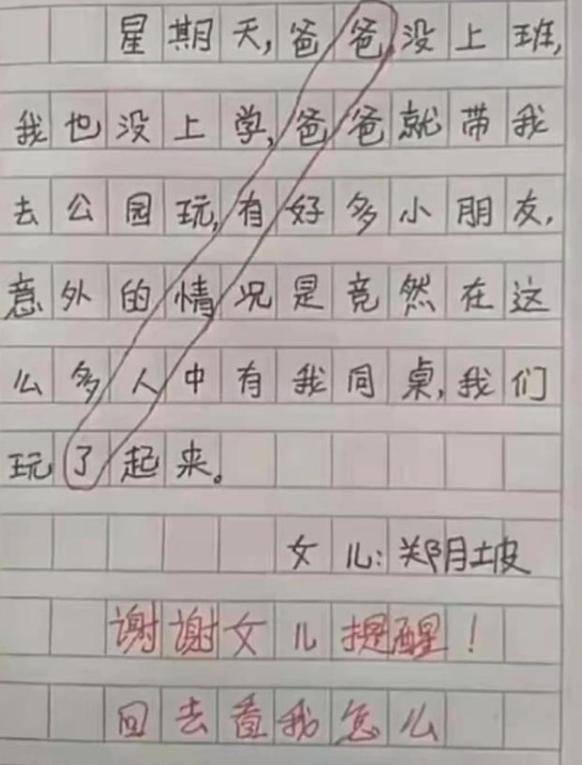 星期天,爸爸没上班,
我也没上学,爸爸就带我
去公园玩,有好多小朋友,
意外的情况是竟然在这
么多人中有我同桌,我们
玩了起来。
女儿:郑月坡
谢谢女儿提醒!
回去看我怎么